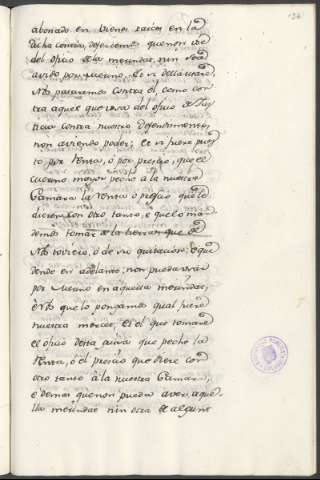 abonado en bienes raices en la
dicha comarca, defendemos que non use
del oficio de la merindat, nin sea
avido por Merino. E si della usare,
Nos pararemos contra él como con-
tra aquel que usa del oficio de Jus-
ticia contra nuestro defendimiento,
non aviendo poder; E si fuere pues-
to por Renta, ó por prescio, que el
Merino mayor peche á la nuestra
Camara la renta ó prescio que le
dieren con otro tanto, e que lo man-
demos tomar de la tierra que de
Nos toviere, ó de su quitacion: E que
dende en adelante, non pueda usar
por Merino en aquella merindat,
e Nos que lo pongamos qual fuere
nuestra merced, E el que tomare
el oficio desta guisa que peche la
Renta, ó el prescio que diere con
otro tanto á la nuestra Camara,
e demas que non pueda aver aque-
lla merindat nin otra de alguno